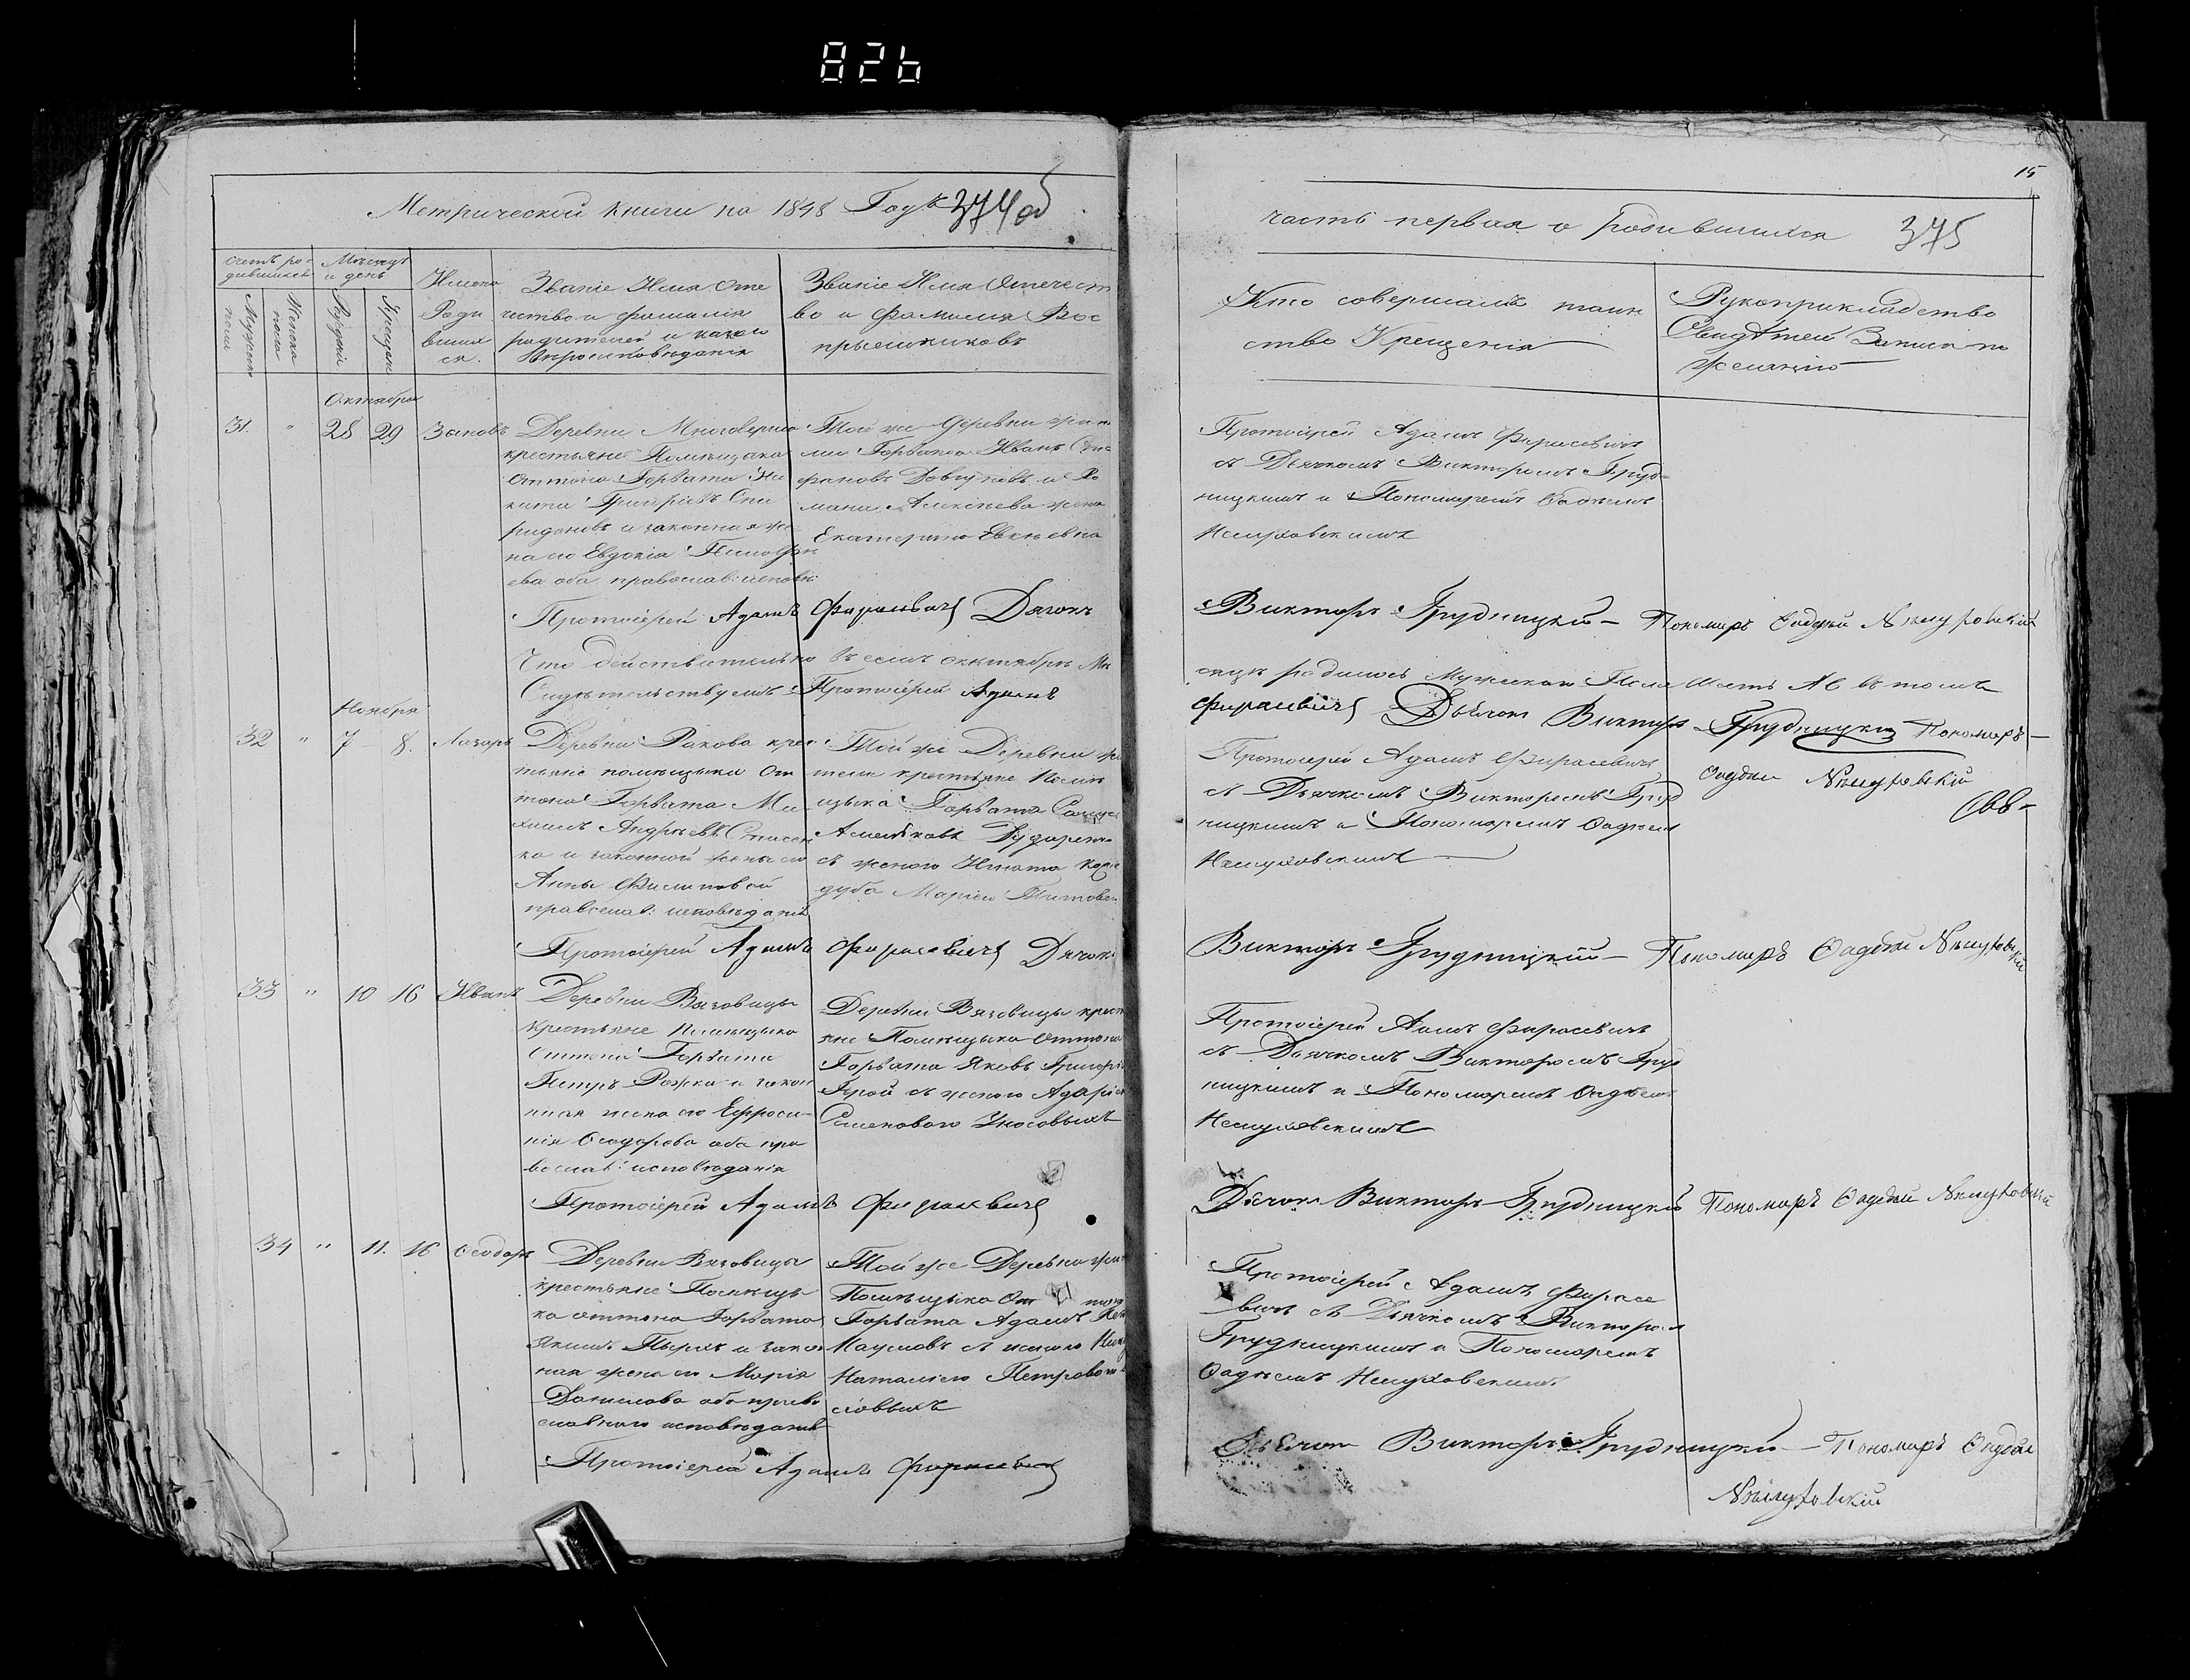 826
Метрической книги на 1848 Годъ 374об
счетъ ро-
дившихся
Мѣсяцъ
и день
Мужеска
пола
Женска
пола
Рожденія
Крещенія
Имена
Роди
вших
ся.
Званіе Имя Оте
чество и фамилія
родителей и какого
Вѣроисповѣданія
Званіе Имя Отечест
во и Фамилія Вос
пріемниковъ
Октября
31. " 28 29
Деревни
крестьяне Помѣщика
Оттона Горвата Ни
кита Григоріевъ Спи
ридоновъ и законная же
на его Евдокія Тимофѣ
ева оба православ: исповѣ:
Той же деревни жит
Горвата Иванъ
и Ро
мана Алексѣева жена
Екатерина
Протоіерей Адамъ Фирасевичъ Дячокъ
Что дѣйствительно въ семъ октябрѣ Мѣ
Свидѣтельствуемъ Протоіерей Адамъ
Ноября
32 " 7 8. Лазарь
Деревни Ракова крес
тьяне помѣщика От
тона Горвата Ми
хаилъ Андреевъ
ка и законной жены его
Анны Филиповой
православ: исповѣданія
Той же Деревни жи
тели крестьяне Помѣ
щика Горвата
съ женою Игната
дуба Маріею Титовою
Протоіерей Адамъ Фирасевичъ Дячокъ
33 " 10 16 Иванъ
Деревни Вязовицы
Крестьяне Помѣщика
Оттона Горвата
Петръ Рожко и закон
ная жена его Ефроси-
нія Ѳеодорова оба пра
вослав: исповѣданія
Деревни Вязовицы крест
яне Помѣщика Оттона
Горвата Яковъ Григорі
съ женою
Семеновою
Протоіерей Адамъ Фирасевичъ
34 " 11. 16 Ѳеодоръ
Деревни Вязовицы
крестьяне Помѣщи
ка Оттона Горвата
Якимъ и закон
ная жена его Марія
Данилова оба право
славнаго исповѣданія
Той же Деревни жит
Помѣщика От тона
Горвата Адамъ
Наумовъ съ женою
Наталіею Петровою
Протоіерей Адамъ Фирасевичъ
15
часть первая о родившихся 375
Кто совершалъ таин
ство Крещенія
Рукоприкладство
Свидѣтелей Записи по
желанію
Протоіерей Адамъ Фирасевичъ
съ Дьячкомъ Викторомъ Груд-
ницкимъ и Пономаремъ Ѳадѣемъ
Немуховскимъ
Викторъ Грудницкій - Пономарь Ѳадѣй Нѣмуховскій
сяцѣ родилось Мужескаго Пола шесть
Фирасевичъ Дьячокъ Викторъ Грудницкій Пономарь -
Ѳадѣй Нѣмуховскій
Протоіерей Адамъ Фирасевичъ
съ Дьячкомъ Викторомъ Груд
ницкимъ и Пономаремъ Ѳадѣемъ
Немуховскимъ
Викторъ Грудницкій - Пономарь Ѳадѣй Нѣмуховскій
Протоіерей Адамъ Фирасевичъ
съ Дьячкомъ Викторомъ Груд
ницкимъ и Пономаремъ Ѳадѣемъ
Немуховскимъ
Дьячокъ Викторъ Грудницкій Пономарь Ѳадѣй Нѣмуховскій
Протоіерей Адамъ Фирасе
вичъ съ Дьячкомъ Викторомъ
Грудницкимъ и Пономаремъ
Ѳадѣемъ Немуховскимъ
Дьячокъ Викторъ Грудницкій - Пономарь Ѳадѣй
Нѣмуховскій